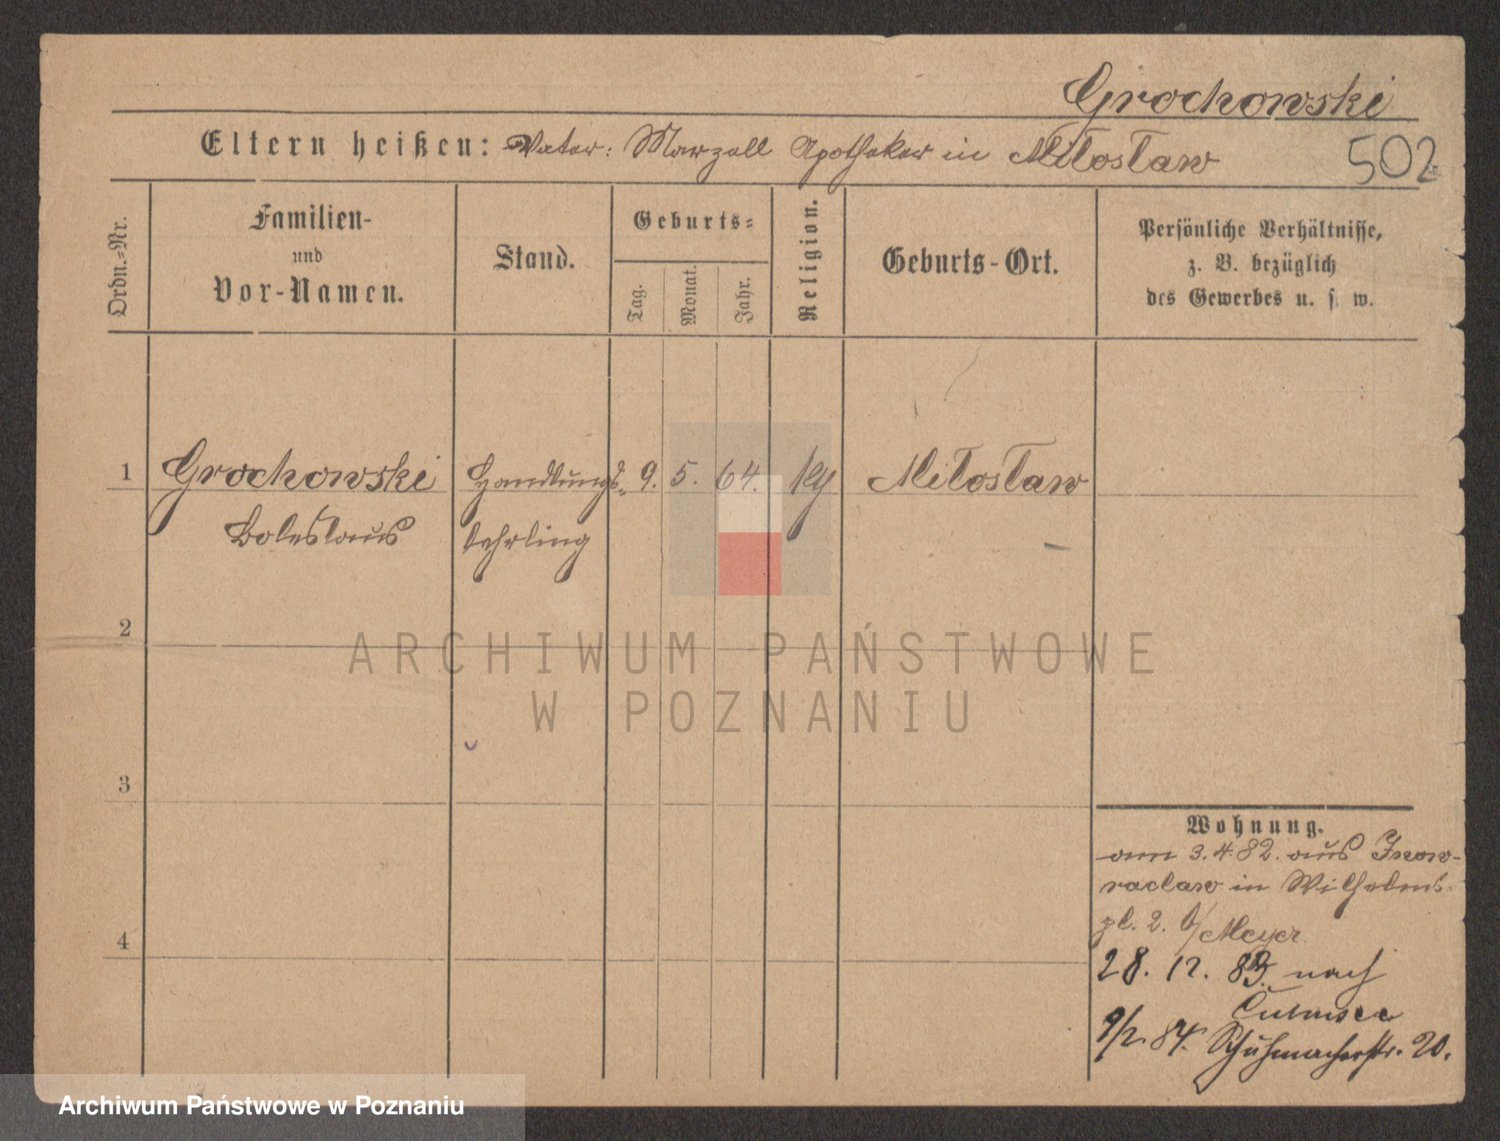 Grochowski
Eltern heißen: Vater: Marzell Apotheker in Miłosław
502
Ordn.-Nr.
Familien-
und
Vor-Namen.
Stand.
Geburts-
Tag.
Monat.
Jahr.
Religion.
Geburts-Ort.
Persönliche Verhältnisse,
z. B. bezüglich
des Gewerbes u. s. w.
1 Grochowski Handlungs- 9. 5. 64. Miłosław
Boleslaus lehrling
2
ARCHIWUM PAŃSTWOWE
W POZNANIU
3
Wohnung.
am 3.4.82. aus Inow-
raclaw in Wilhelms-
pl. 2. b/Meyer
4
28. 12. 83. nach
Culmsee
9/2. 84. Schuhmacherstr. 20.
Archiwum Państwowe w Poznaniu